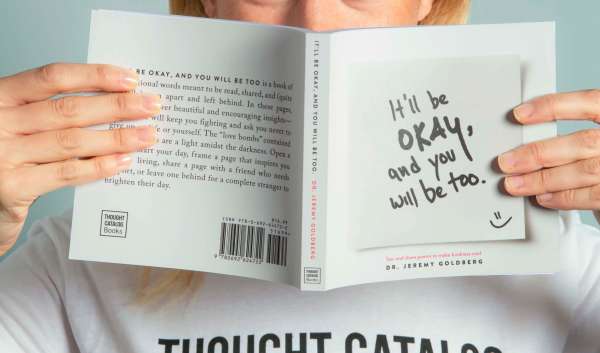 BE OKAY, AND YOU WILL BE TOO is a book of
ional words meant to be read, shared, and (quite
apart and left behind. In these pages,
er beautiful and encouraging insights—
will keep you fighting and ask you never to
give up
e or yourself. The "love bombs" contained
are a light amidst the darkness. Open a
art your day, frame a page that inspires you
living, share a page with a friend who needs
rt, or leave one behind for a complete stranger to
brighten their day.
THOUGHT
CATALOG
Books
IT'LL BE OKAY, AND YOU WILL BE TOO
DR. JEREMY GOLDBERG
THOUGHT
CATALOG
Books
It'll be
OKAY,
and you
will be too.
DR. JEREMY GOLDBERG
THOUGHT CATALOG